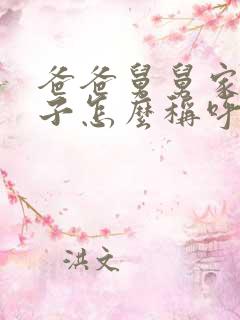 爸爸舅舅家
子怎麼稱呼
洪文